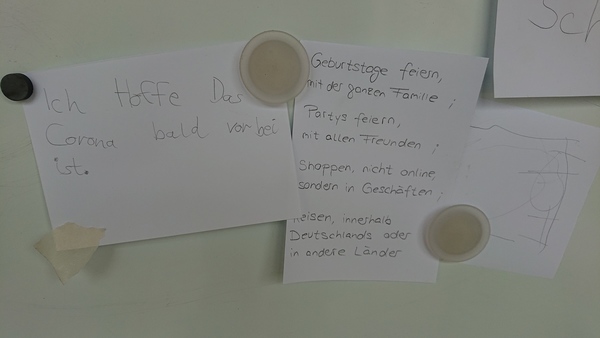 Ich Hoffe Das
Corona bald vorbei
ist.
Geburtstage feiern,
mit der ganzen Familie ;
Partys feiern,
mit allen Freunden ;
Shoppen, nicht online,
sondern in Geschäften ;
Reisen, innerhalb
Deutschlands oder
in andere Länder
Sch